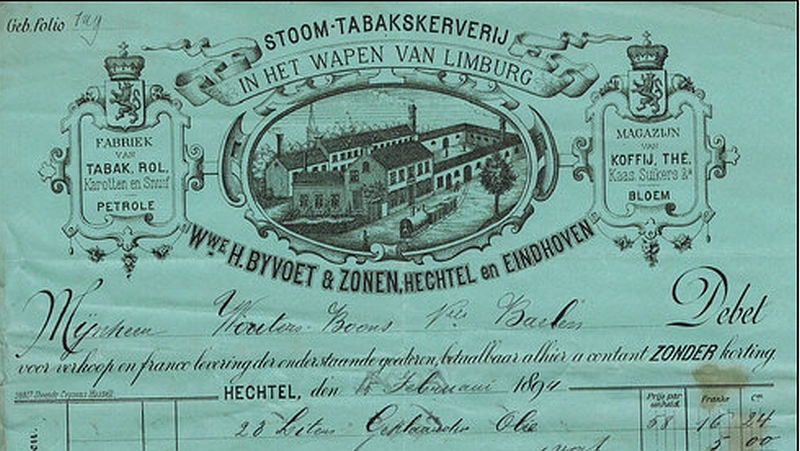 Geb. folio
STOOM-TABAKSKERVERIJ
IN HET WAPEN VAN LIMBURG
FABRIEK
VAN
TABAK, ROL,
Karotten en Snuif
PETROLE
MAGAZIJN
VAN
KOFFIJ, THÉ,
Kaas, Suikers &a
BLOEM
Wwe H. BYVOET & ZONEN, HECHTEL en EINDHOVEN
Mijnheer Wouters-Boons Debet
voor verkoop en franco levering der onderstaande goederen, betaalbaar alhier a contant ZONDER korting.
HECHTEL, den Februari 1894
Prijs per eenheid. Franks Cn
23 Liters Olie 68 16 24
5 00